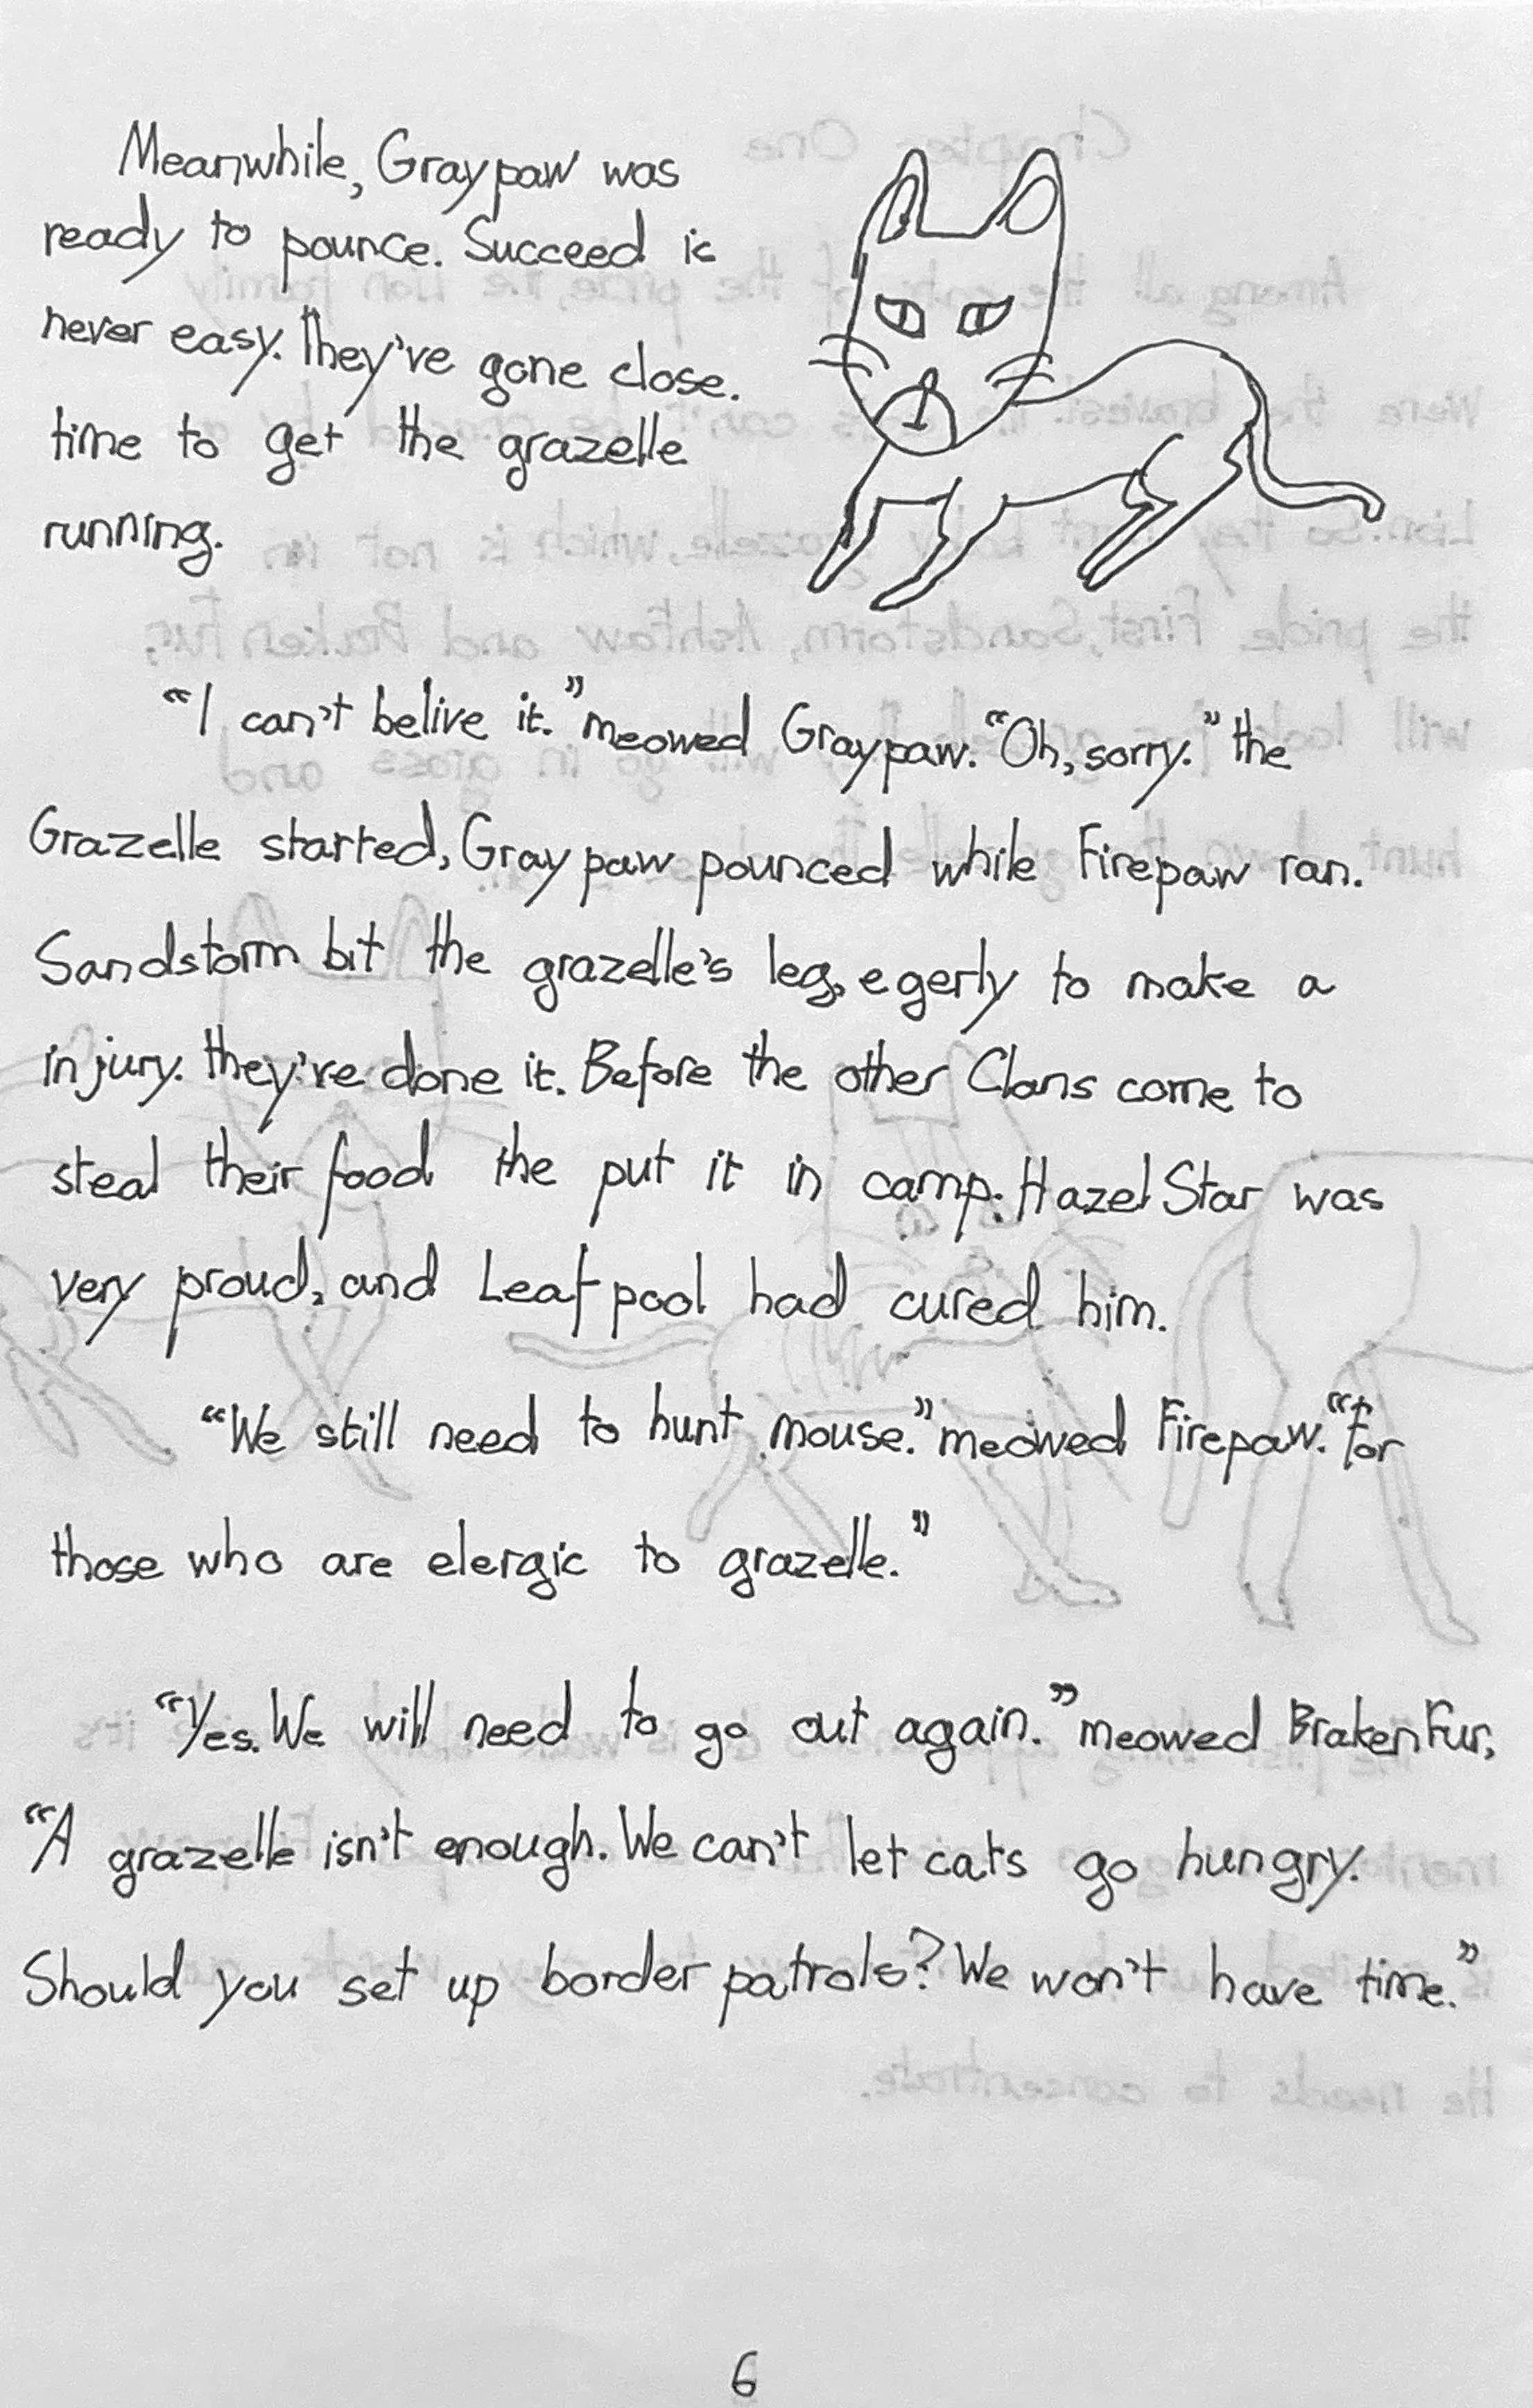 Meanwhile, Graypaw was
ready to pounce. Succeed is
never easy. They've gone close.
time to get the grazelle
running.
“I can't belive it.” meowed Graypaw. “Oh, sorry.” the
Grazelle started, Graypaw pounced while Firepaw ran.
Sandstorm bit the grazelle's leg, egerly to make a
injury. they're done it. Before the other Clans come to
steal their food the put it in camp. Hazel Star was
very proud, and Leaf pool had cured him.
“We still need to hunt mouse.” meowed Firepaw. “For
those who are elergic to grazelle.”
“Yes. We will need to go out again.” meowed Braken Fur,
“A grazelle isn't enough. We can't let cats go hungry.
Should you set up border patrols? We won't have time.”
6